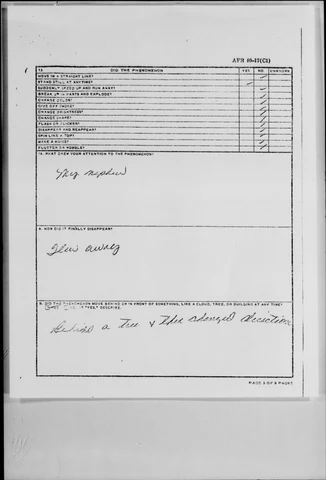 AFR 80-17(C1)
13. DID THE PHENOMENON YES NO UNKNOWN
MOVE IN A STRAIGHT LINE?
STAND STILL AT ANY TIME?
SUDDENLY SPEED UP AND RUN AWAY?
BREAK UP IN PARTS AND EXPLODE?
CHANGE COLOR?
GIVE OFF SMOKE?
CHANGE BRIGHTNESS?
CHANGE SHAPE?
FLASH OR FLICKER?
DISAPPEAR AND REAPPEAR?
SPIN LIKE A TOP?
MAKE A NOISE?
FLUTTER OR WOBBLE?
14. WHAT DREW YOUR ATTENTION TO THE PHENOMENON?
My nephew
A. HOW DID IT FINALLY DISAPPEAR?
Flew away
B. DID THE PHENOMENON MOVE BEHIND OR IN FRONT OF SOMETHING, LIKE A CLOUD, TREE, OR BUILDING AT ANY TIME?
IF "YES," DESCRIBE.
Behind a tree & then changed direction
PAGE 5 OF 8 PAGES